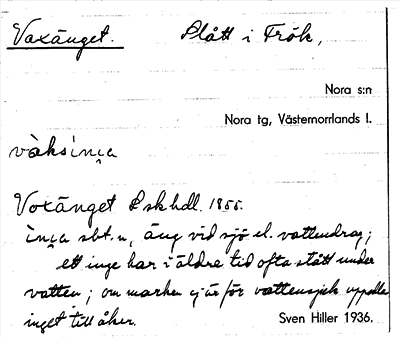 Vaxänget. Slått i Frök,
Nora s:n
Nora tg, Västernorrlands l.
vàksiṇa
Voxänget Lskhdl. 1855.
iṇa sbt. n, äng vid sjö el. vattendrag;
ett inge har i äldre tid ofta stått under
vatten; om marken ej är för vattensjuk uppodlas
inget till åker. Sven Hiller 1936.